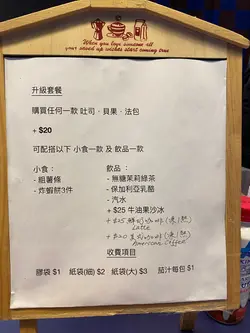 When you love someone all
your saved up wishes start coming true
升級套餐
購買任何一款 吐司．貝果．法包
+ $20
可配搭以下 小食一款 及 飲品一款
小食：
- 粗薯條
- 炸蝦餅3件
飲品：
- 無糖茉莉綠茶
- 保加利亞乳酪
- 汽水
- + $25 牛油果沙冰
- + $25 鮮奶咖啡(凍/熱)
Latte
- + $20 美式咖啡(凍/熱)
American Coffee
收費項目
膠袋 $1 紙袋(細) $2 紙袋(大) $3 茄汁每包 $1